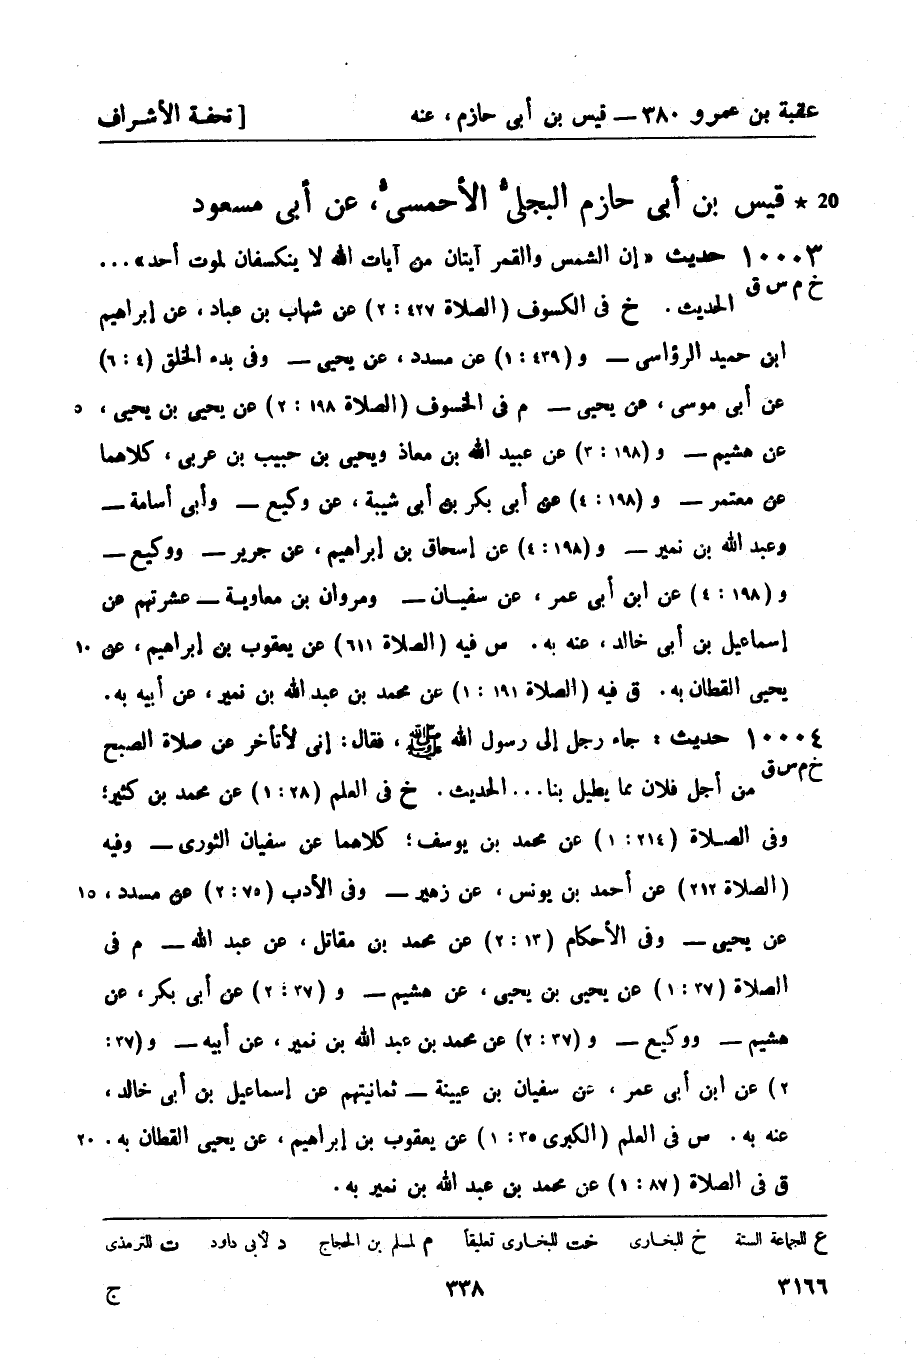 عقبة بن عمرو ٣٨٠ — قيس بن أبى حازم ، عنه [ تحفة الأشراف
20 * قيس بن أبى حازم البجلىّ الأحمسىّ ، عن أبى مسعود
١٠٠٠٣ حديث « إن الشمس والقمر آيتان من آيات الله لا ينكسفان لموت أحد» ...
خ م س ق الحديث . خ فى الكسوف (الصلاة ٤٢٧ : ٢) عن شهاب بن عباد ، عن إبراهيم
ابن حميد الرؤاسى — و (٤٣٩ : ١) عن مسدد ، عن يحيى — وفى بدء الخلق (٤ : ٦)
عن أبى موسى ، عن يحيى — م فى الخسوف (الصلاة ١٩٨ : ٢) عن يحيى بن يحيى ، ٥
عن هشيم — و (١٩٨ : ٣) عن عبيد الله بن معاذ ويحيى بن حبيب بن عربى ، كلاهما
عن معتمر — و (١٩٨ : ٤) عن أبى بكر بن أبى شيبة ، عن وكيع — وأبى أسامة —
وعبد الله بن نمير — و (١٩٨ : ٤) عن إسحاق بن إبراهيم ، عن جرير — ووكيع —
و (١٩٨ : ٤) عن ابن أبى عمر ، عن سفيان — ومروان بن معاوية — عشرتهم عن
إسماعيل بن أبى خالد ، عنه به . س فيه (الصلاة ٦١١) عن يعقوب بن إبراهيم ، عن ١٠
يحيى القطان به . ق فيه (الصلاة ١٩١ : ١) عن محمد بن عبد الله بن نمير ، عن أبيه به .
١٠٠٠٤ حديث : جاء رجل إلى رسول الله ﷺ ، فقال : إنى لأتأخر عن صلاة الصبح
خ م س ق من أجل فلان مما يطيل بنا ... الحديث . خ فى العلم (٢٨ : ١) عن محمد بن كثير ؛
وفى الصلاة (٢١٤ : ١) عن محمد بن يوسف ؛ كلاهما عن سفيان الثورى — وفيه
(الصلاة ٢١٢) عن أحمد بن يونس ، عن زهير — وفى الأدب (٧٥ : ٢) عن مسدد ، ١٥
عن يحيى — وفى الأحكام (١٣ : ٢) عن محمد بن مقاتل ، عن عبد الله — م فى
الصلاة (٣٧ : ١) عن يحيى بن يحيى ، عن هشيم — و (٣٧ : ٢) عن أبى بكر ، عن
هشيم — ووكيع — و (٣٧ : ٢) عن محمد بن عبد الله بن نمير ، عن أبيه — و (٣٧ :
٢) عن ابن أبى عمر ، عن سفيان بن عيينة — ثمانيتهم عن إسماعيل بن أبى خالد ،
عنه به . س فى العلم (الكبرى ٣٥ : ١) عن يعقوب بن إبراهيم ، عن يحيى القطان به . ٢٠
ق فى الصلاة (٨٧ : ١) عن محمد بن عبد الله بن نمير به .
ع للجماعة الستة خ للبخارى خت للبخارى تعليقاً م لمسلم بن الحجاج د لأبى داود ت للترمذى
٣١٦٦ ٣٣٨ ج